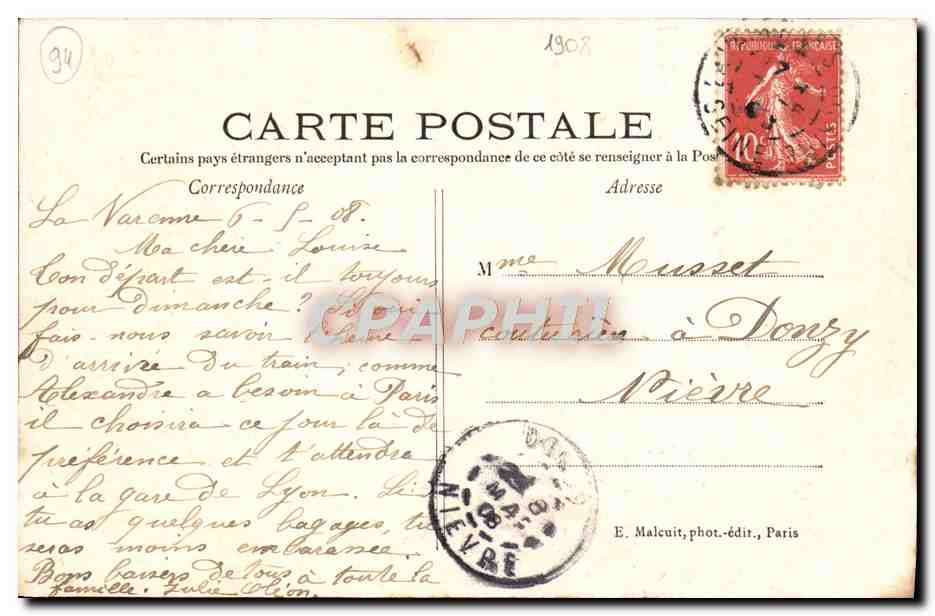 94
1908
RÉPUBLIQUE FRANÇAISE
10c
POSTES
SEINE
CARTE POSTALE
Certains pays étrangers n'acceptant pas la correspondance de ce côté se renseigner à la Pos
Correspondance
La Varenne 6 - 5 - 08.
Ma chère Louise
Ton départ est-il toujours
pour dimanche ? Si oui
fais-nous savoir l'heure
d'arrivée du train ; comme
Alexandre a besoin à Paris
il choisira ce jour là de
préférence et t'attendre
à la gare de Lyon. Si
tu as quelques bagages, tu
seras moins embarassée.
Bons baisers de tous à toute la
famille. Julie
Adresse
Mme Musset
couturière à Donzy
Nièvre
CPAPHIL
DONZY
8
MAI
08
NIEVRE
E. Malcuit, phot.-édit., Paris